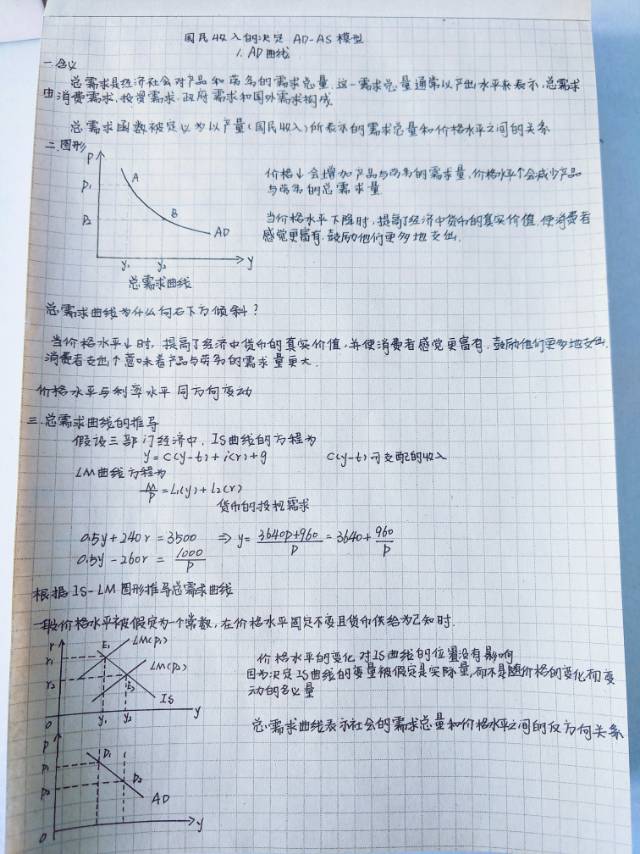 国民收入的决定 AD-AS模型
1. AD曲线
一.含义
总需求是经济社会对产品和劳务的需求总量,这一需求总量通常以产出水平来表示,总需求
由消费需求、投资需求、政府需求和国外需求构成
总需求函数被定义为以产量(国民收入)所表示的需求总量和价格水平之间的关系
二.图形
P
P₁
P₂
A
B
AD
y₁
y₂
y
总需求曲线
价格↓会增加产品与劳务的需求量,价格水平个会减少产品
与劳务的总需求量
当价格水平下降时,提高了经济中货币的真实价值,使消费者
感觉更富有,鼓励他们更多地支出.
总需求曲线为什么向右下方倾斜?
当价格水平↓时,提高了经济中货币的真实价值,并使消费者感觉更富有,鼓励他们更多地支出.
消费者支出个意味着产品与劳务的需求量更大.
价格水平与利率水平同方向变动
三.总需求曲线的推导
假设三部门经济中,IS曲线的方程为
y=c(y-t)+i(r)+g
c(y-t)可支配的收入
LM曲线方程为
M/P=L₁(y)+L₂(r)
货币的投机需求
0.5y+240r=3500 ⇒ y=(3640P+960)/P=3640+960/P
0.5y-260r=1000/P
根据IS-LM图形推导总需求曲线
一般价格水平被假定为一个常数,在价格水平固定不变且货币供给为已知时.
r
r₁
r₂
E₁
E₂
LM(P₁)
LM(P₂)
IS
0
y₁
y₂
y
价格水平的变化对IS曲线的位置没有影响
因为决定IS曲线的变量被假定是实际量,而不是随价格的变化而变
动的名义量
总需求曲线表示社会的需求总量和价格水平之间的反方向关系
P
P₁
P₂
D₁
D₂
AD
0
y